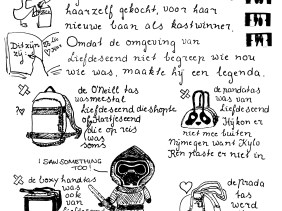 haarzelf gekocht, voor haar
nieuwe baan als kastwinner.
Dit zijn
zij
Omdat de omgeving van
Liefdeseend niet begreep wie nou
wie was, maakte hij een legenda.
de O'Neill tas
was meestal
Liefdeseend die shopte
of Hartjeseend
die op reis
was
soms
de pandatas
was van
Liefdeseend
Hij kon er
niet mee buiten
Nijmegen want Kylo
Ren paste er niet in
I SAW SOMETHING
TOO!
de boxy handtas
was
ook
van
Liefdeseend
de prada
tas
werd